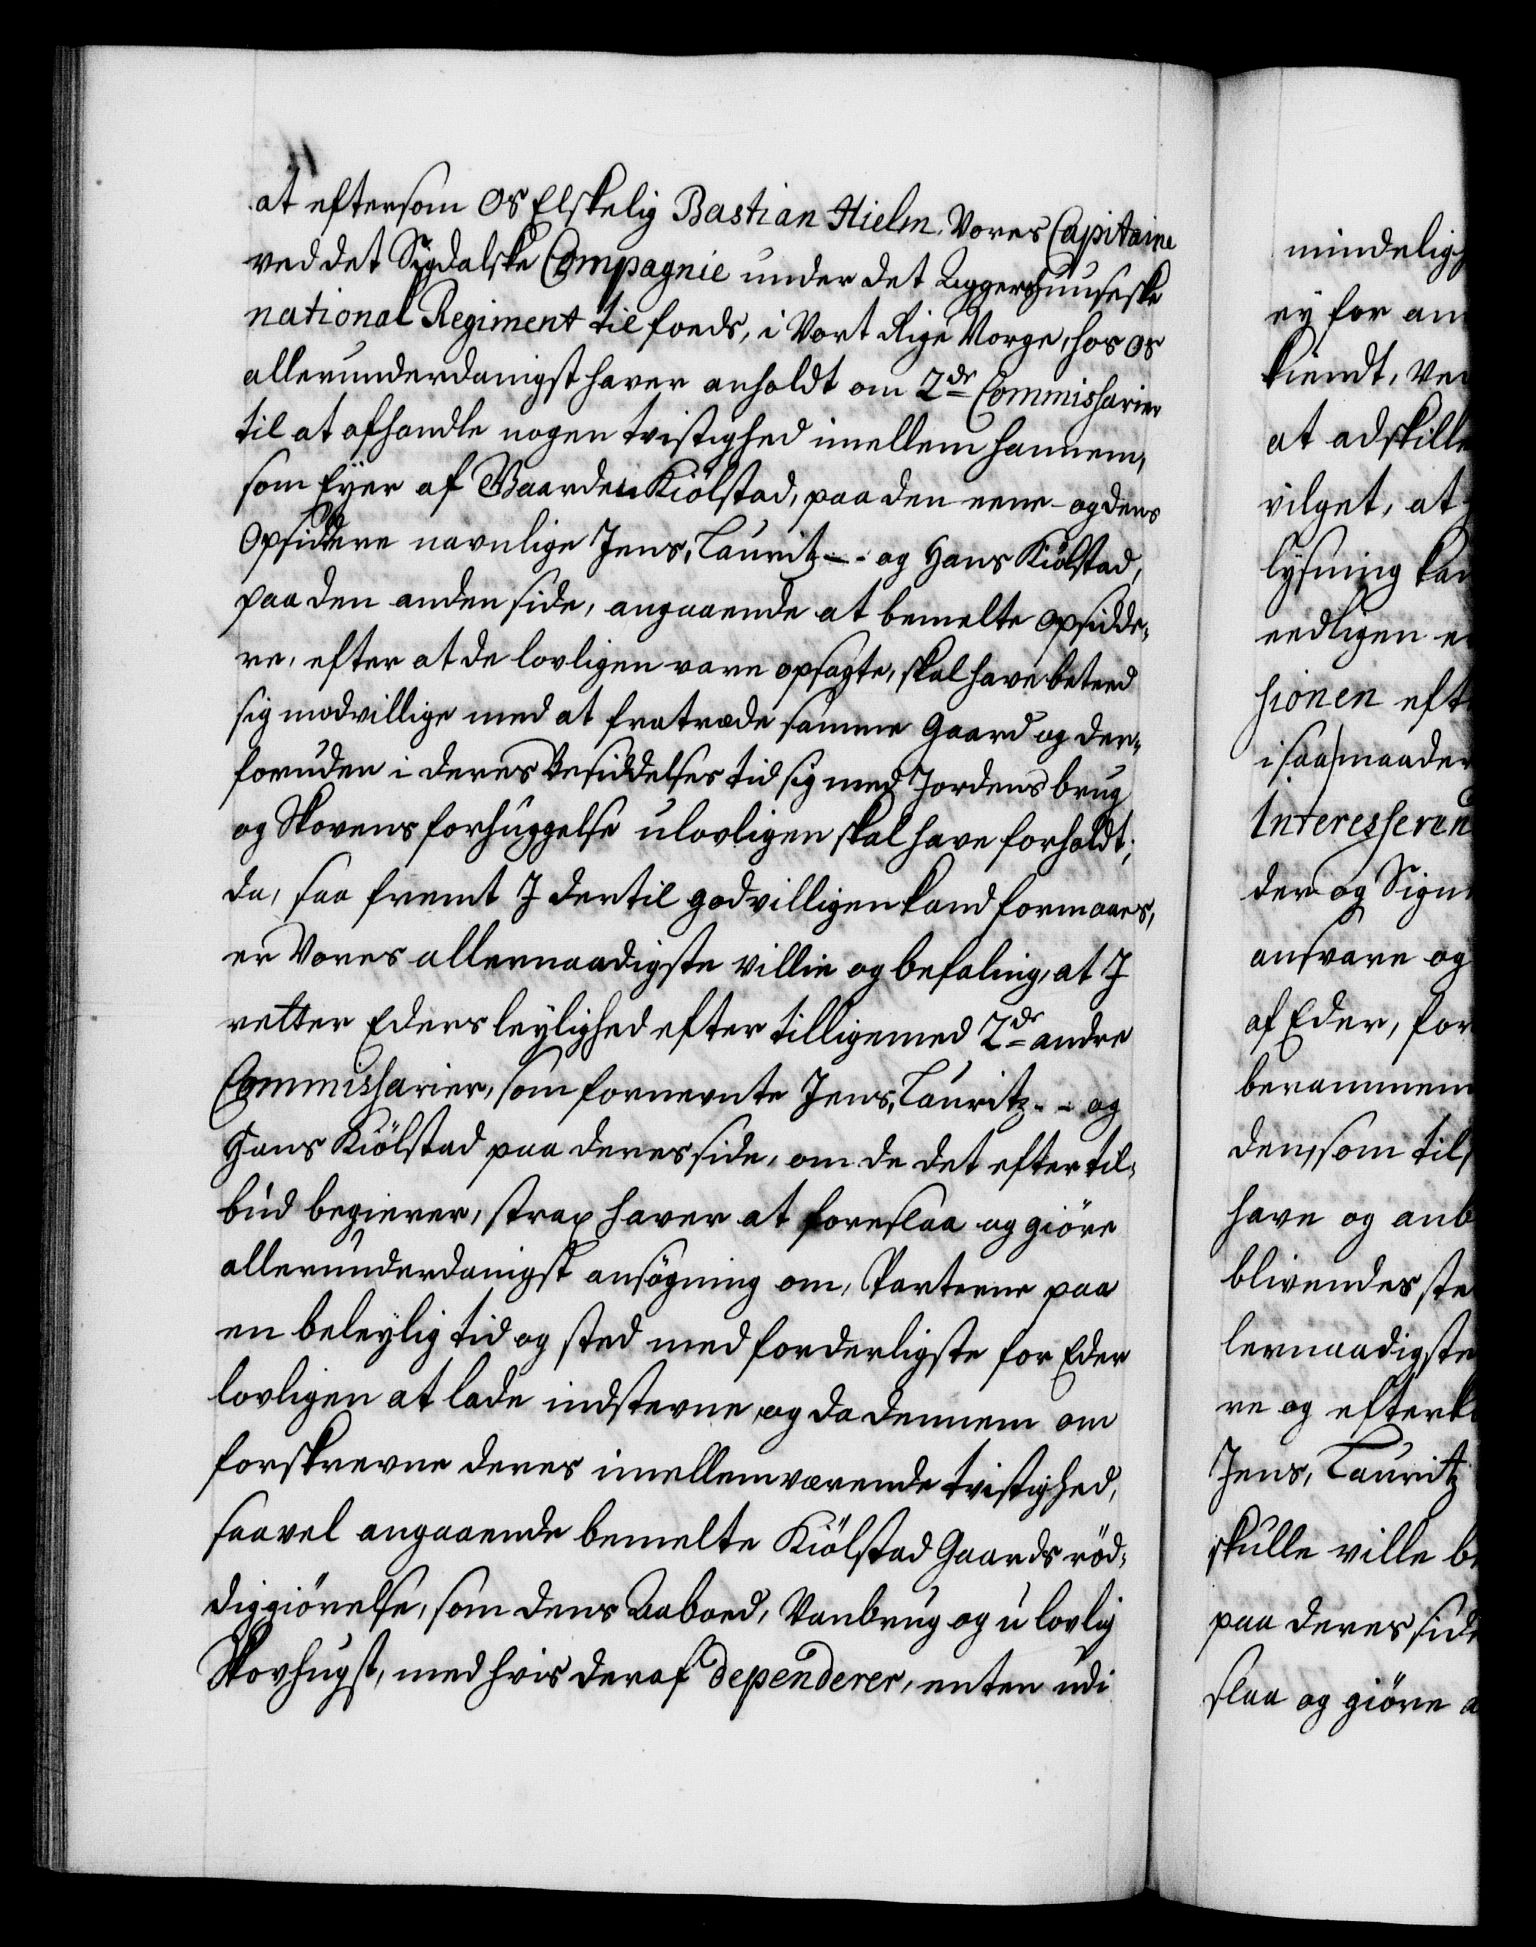 at eftersom Os Elskelig Bastian Hielm, Vores Capitaine
ved det Sigdalske Compagnie under det Aggershuusiske
national Regiment til foeds, i Vort Rige Norge, hos Os
allerunderdanigst haver anholdt om 2de Commissarier
til at afhandle nogen tvistighed imellem hannem,
som Eyer af Gaarden Kiölstad, paa den eene- og dens
Opsiddere navnlige Jens, Lauritz - - og Hans Kiölstad,
paa den anden side, angaaende at bemelte opsidde-
re, efter at de lovligen vare opsagte, skal have beteed
sig modvillige med at fratræde samme Gaard og der-
foruden i deres Besiddelses tid sig med Jordens brug
og Skovens forhuggelse ulovligen skal have forholdt;
da, saa fremt I dertil godvilligen kand formaaes,
er Vores allernaadigste villie og befaling, at I
retter Eders leylighed efter tilligemed 2de andre
Commissarier, som fornevnte Jens, Lauritz - - og
Hans Kiölstad paa deres side, om de det efter til-
bud begierer, strax haver at foreslaa og giöre
allerunderdanigst ansögning om, Parterne paa
en beleylig tid og sted med forderligste for Eder
lovligen at lade indstevne, og da dennem om
forskrevne deres imellemværende tvistighed,
saavel angaaende bemelte Kiölstad Gaards röd-
diggiörelse, som dens Aaboed, Vanbrug og ulovlig
Skovhugst, med hvis deraf dependerer, enten udi
mindelig
ey for
kiendt, Ve
at adskille
vilget, at
lysning
eedligen
sionen eft
i saa maader
Interesseren
der og Sign
ansvare og
af Eder, for
berammem
den, som til
have og anb
blivendes ste
lernaadigste
re og efterk
Jens, Lauritz
skulle ville b
paa deres side
slaa og giöre a